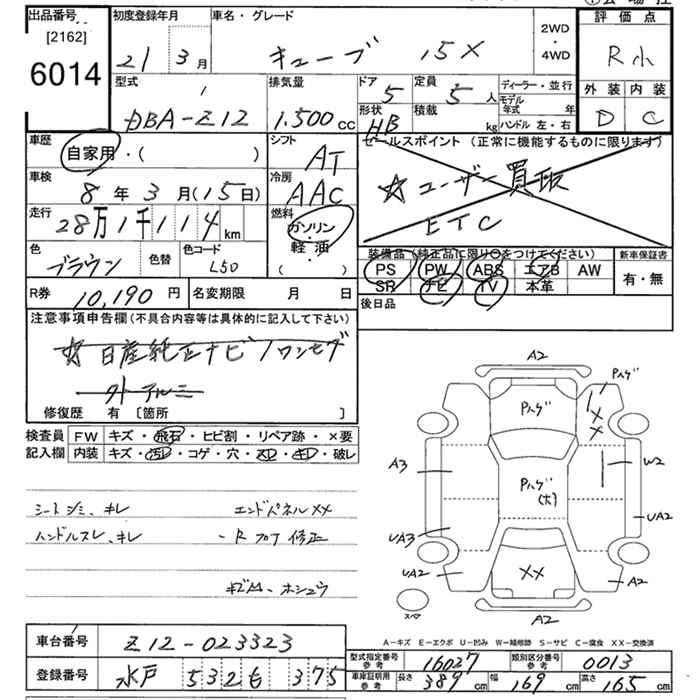 出品番号
[2162]
6014
初度登録年月
21 3月
車名・グレード
キューブ 15X
2WD
・
4WD
評価点
R小
外装 内装
D C
型式
DBA-Z12
排気量
1.500CC
ドア
5
定員
5人
形状
HB
積載
kg
ディーラー・並行
モデル
年式 年
ハンドル 左・右
車歴
自家用・( )
シフト
AT
セールスポイント (正常に機能するものに限ります)
☆ユーザー買取
ETC
車検
8年3月(15日)
冷房
AAC
走行
28万1千114km
燃料
ガソリン
・
軽油
( )
色
ブラウン
色替
色コード
L50
装備品(純正品に限り○をつけてください)
PS PW ABS エアB AW
SR ナビ TV 本革
新車保証書
有・無
R券 10,190円
名変期限 月 日
後日品
注意事項申告欄(不具合内容等は具体的に記入して下さい)
☆日産純正ナビ/ワンセグ
外アルミ
修復歴 有 [箇所 ]
検査員
記入欄
FW キズ・飛石・ヒビ割・リペア跡・×要
内装 キズ・汚レ・コゲ・穴・スレ・キレ・破レ
シートシミ、キレ
ハンドルスレ、キレ
エンドパネルXX
-Rフロア修正
A2
Pハゲ
Pハゲ
XX
A3
W2
Pハゲ
(大)
UA3
UA2
UA2
XX
A2
スペア
A2
A-キズ E-エクボ U-凹み W-補修跡 S-サビ C-腐食 XX-交換済
車台番号
Z12-023323
登録番号
水戸 532 も 375
型式指定番号
参考
16027
類別区分番号
参考
0013
車庫証明用
参考
長さ 389cm
幅 169cm
高さ 165cm